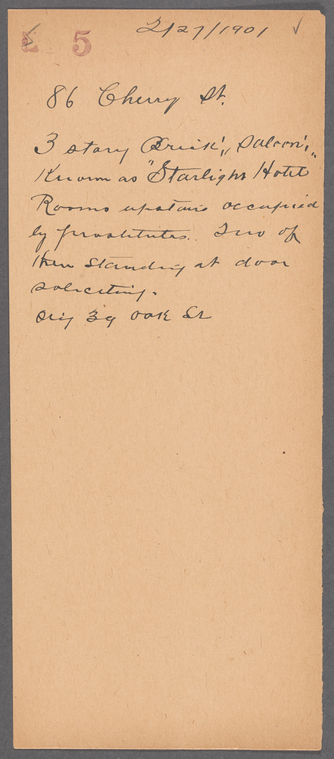 5 2/27/1901
86 Cherry St.
3 story Brick, Saloon,
Known as "Starlight Hotel
Rooms upstairs occupied
by prostitutes. Two of
them standing at door
soliciting.
39 Oak St